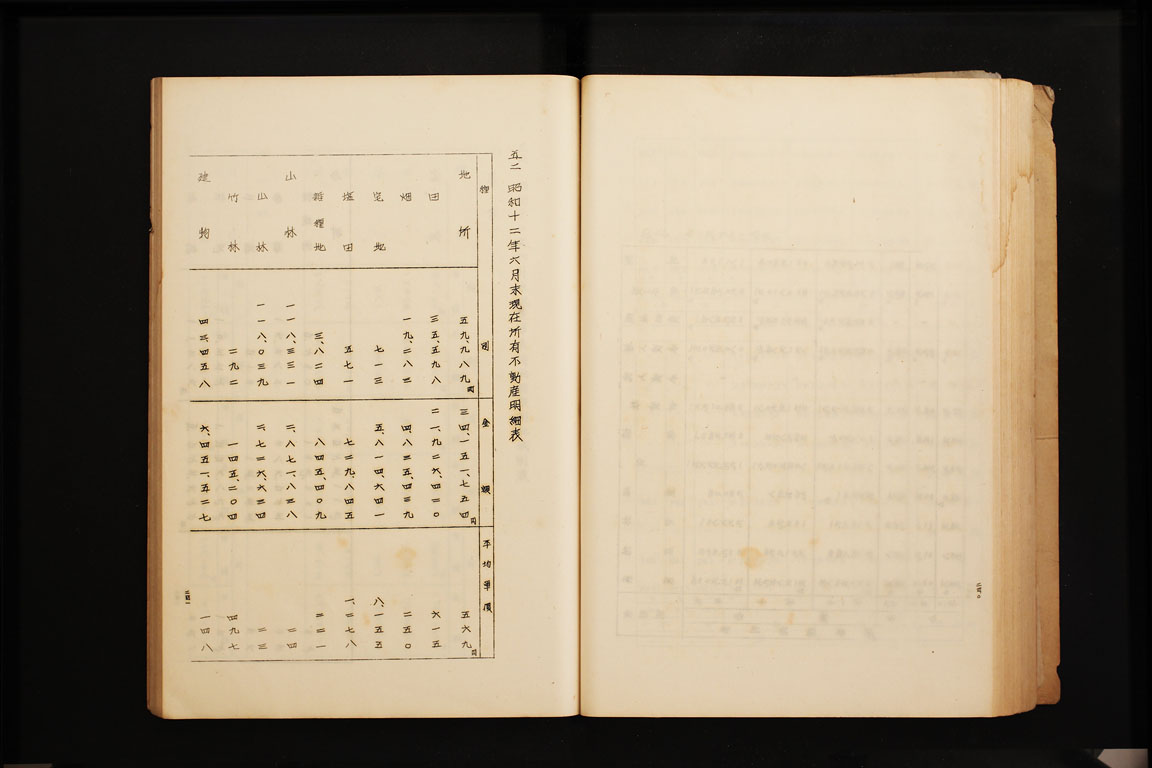 五二 昭和十二年六月末現在所有不動産明細表
種別 金額 平均單價
地所 五九、九八九町 三四、一五一、七五四円 五六九円
田 三五、五九八 二一、九二六、四二〇 六一五
畑 一九、二八三 四、八三五、四三九 二五〇
宅地 七一三 五、八一四、六四一 八、一五五
塩田 五七一 七二九、八四五 一、二七八
雑種地 三、八二四 八四五、四〇九 二二一
山林 一一八、三三一 二、八七一、八三八 二四
山林 一一八、〇三九 二、七二六、六三四 二三
竹林 二九二 一四五、二〇四 四九七
建物 四三四五八 六、四五一、五二七 一四八
二四一
二四〇